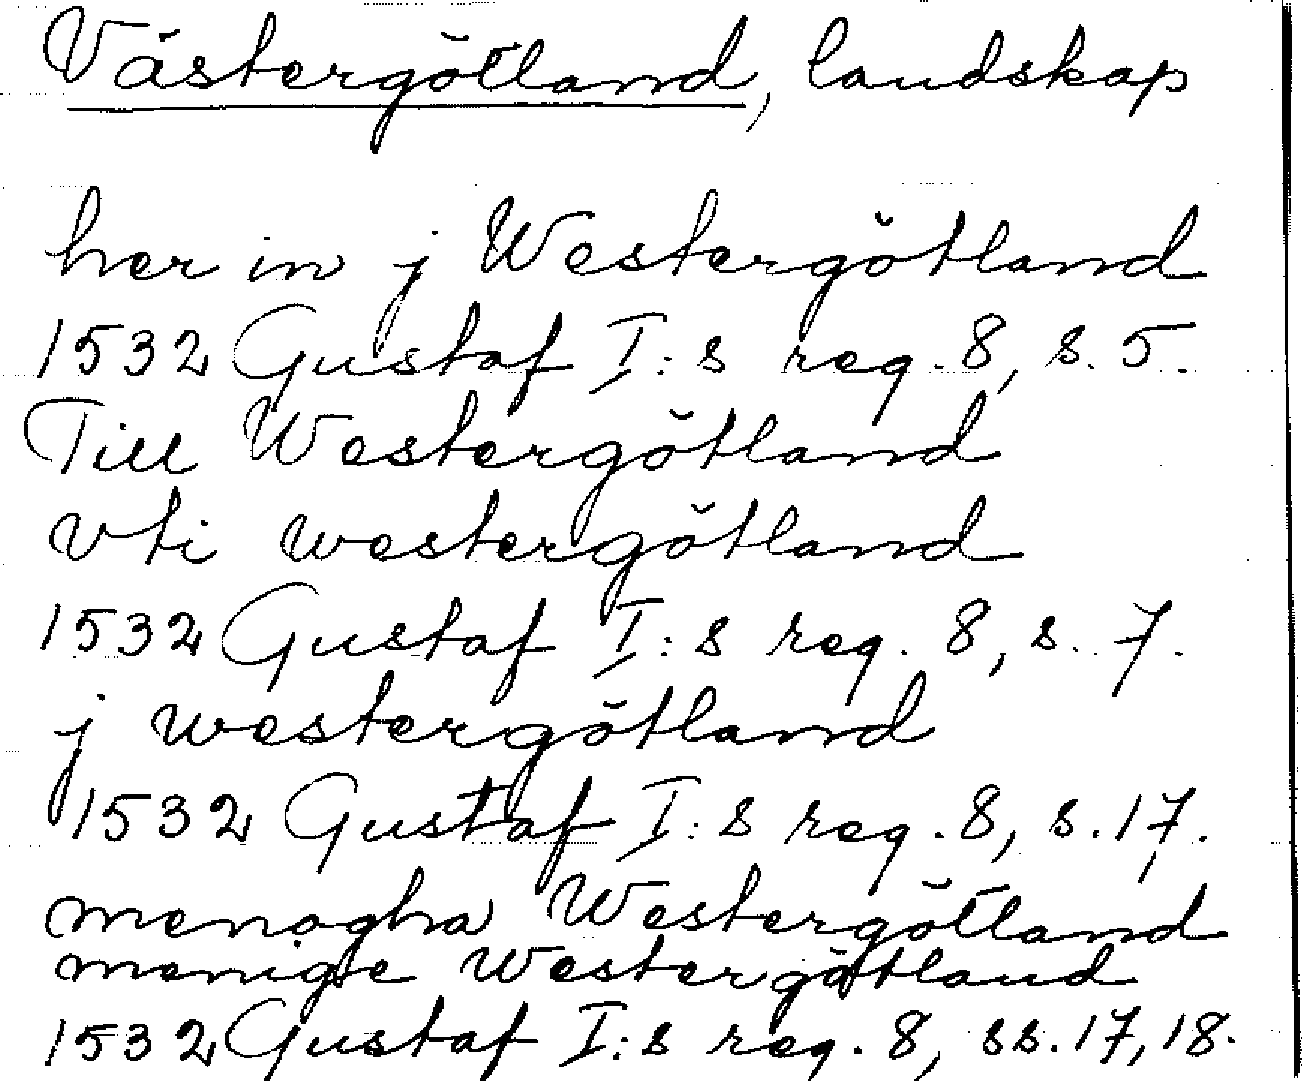 Västergötland, landskap
her in j Westergötland
1532 Gustaf I:s reg. 8, s. 5.
Till Westergötland
vti westergötland
1532 Gustaf I:s reg. 8, s. 7.
j westergötland
1532 Gustaf I:s reg. 8, s. 17.
menogha Westergötland
menige Westergötland
1532 Gustaf I:s reg. 8, ss. 17, 18.